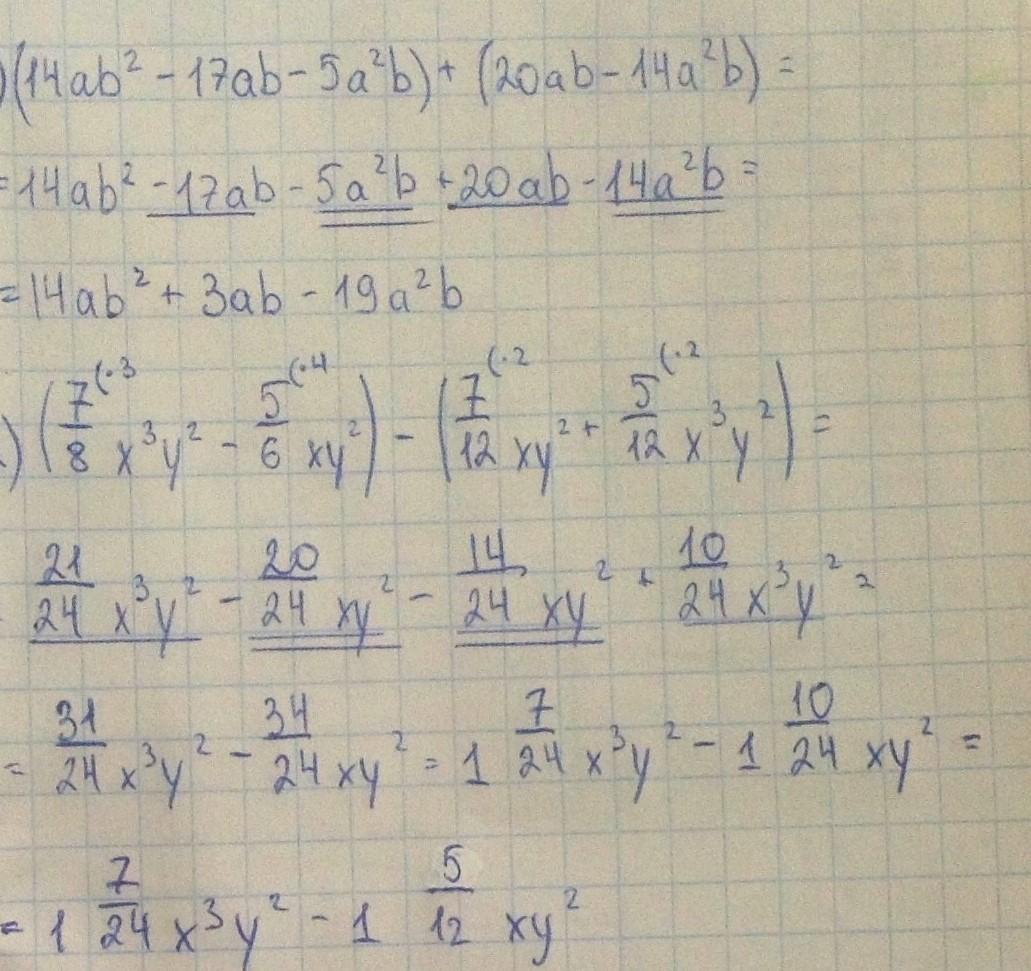 )(14ab² - 17ab - 5a²b) + (20ab - 14a²b) =
= 14ab² - 17ab - 5a²b + 20ab - 14a²b =
= 14ab² + 3ab - 19a²b
) (7/8 (·3 x³y² - 5/6 (·4 xy²) - (7/12 (·2 xy² + 5/12 (·2 x³y²) =
21/24 x³y² - 20/24 xy² - 14/24 xy² + 10/24 x³y² =
= 31/24 x³y² - 34/24 xy² = 1 7/24 x³y² - 1 10/24 xy² =
= 1 7/24 x³y² - 1 5/12 xy²